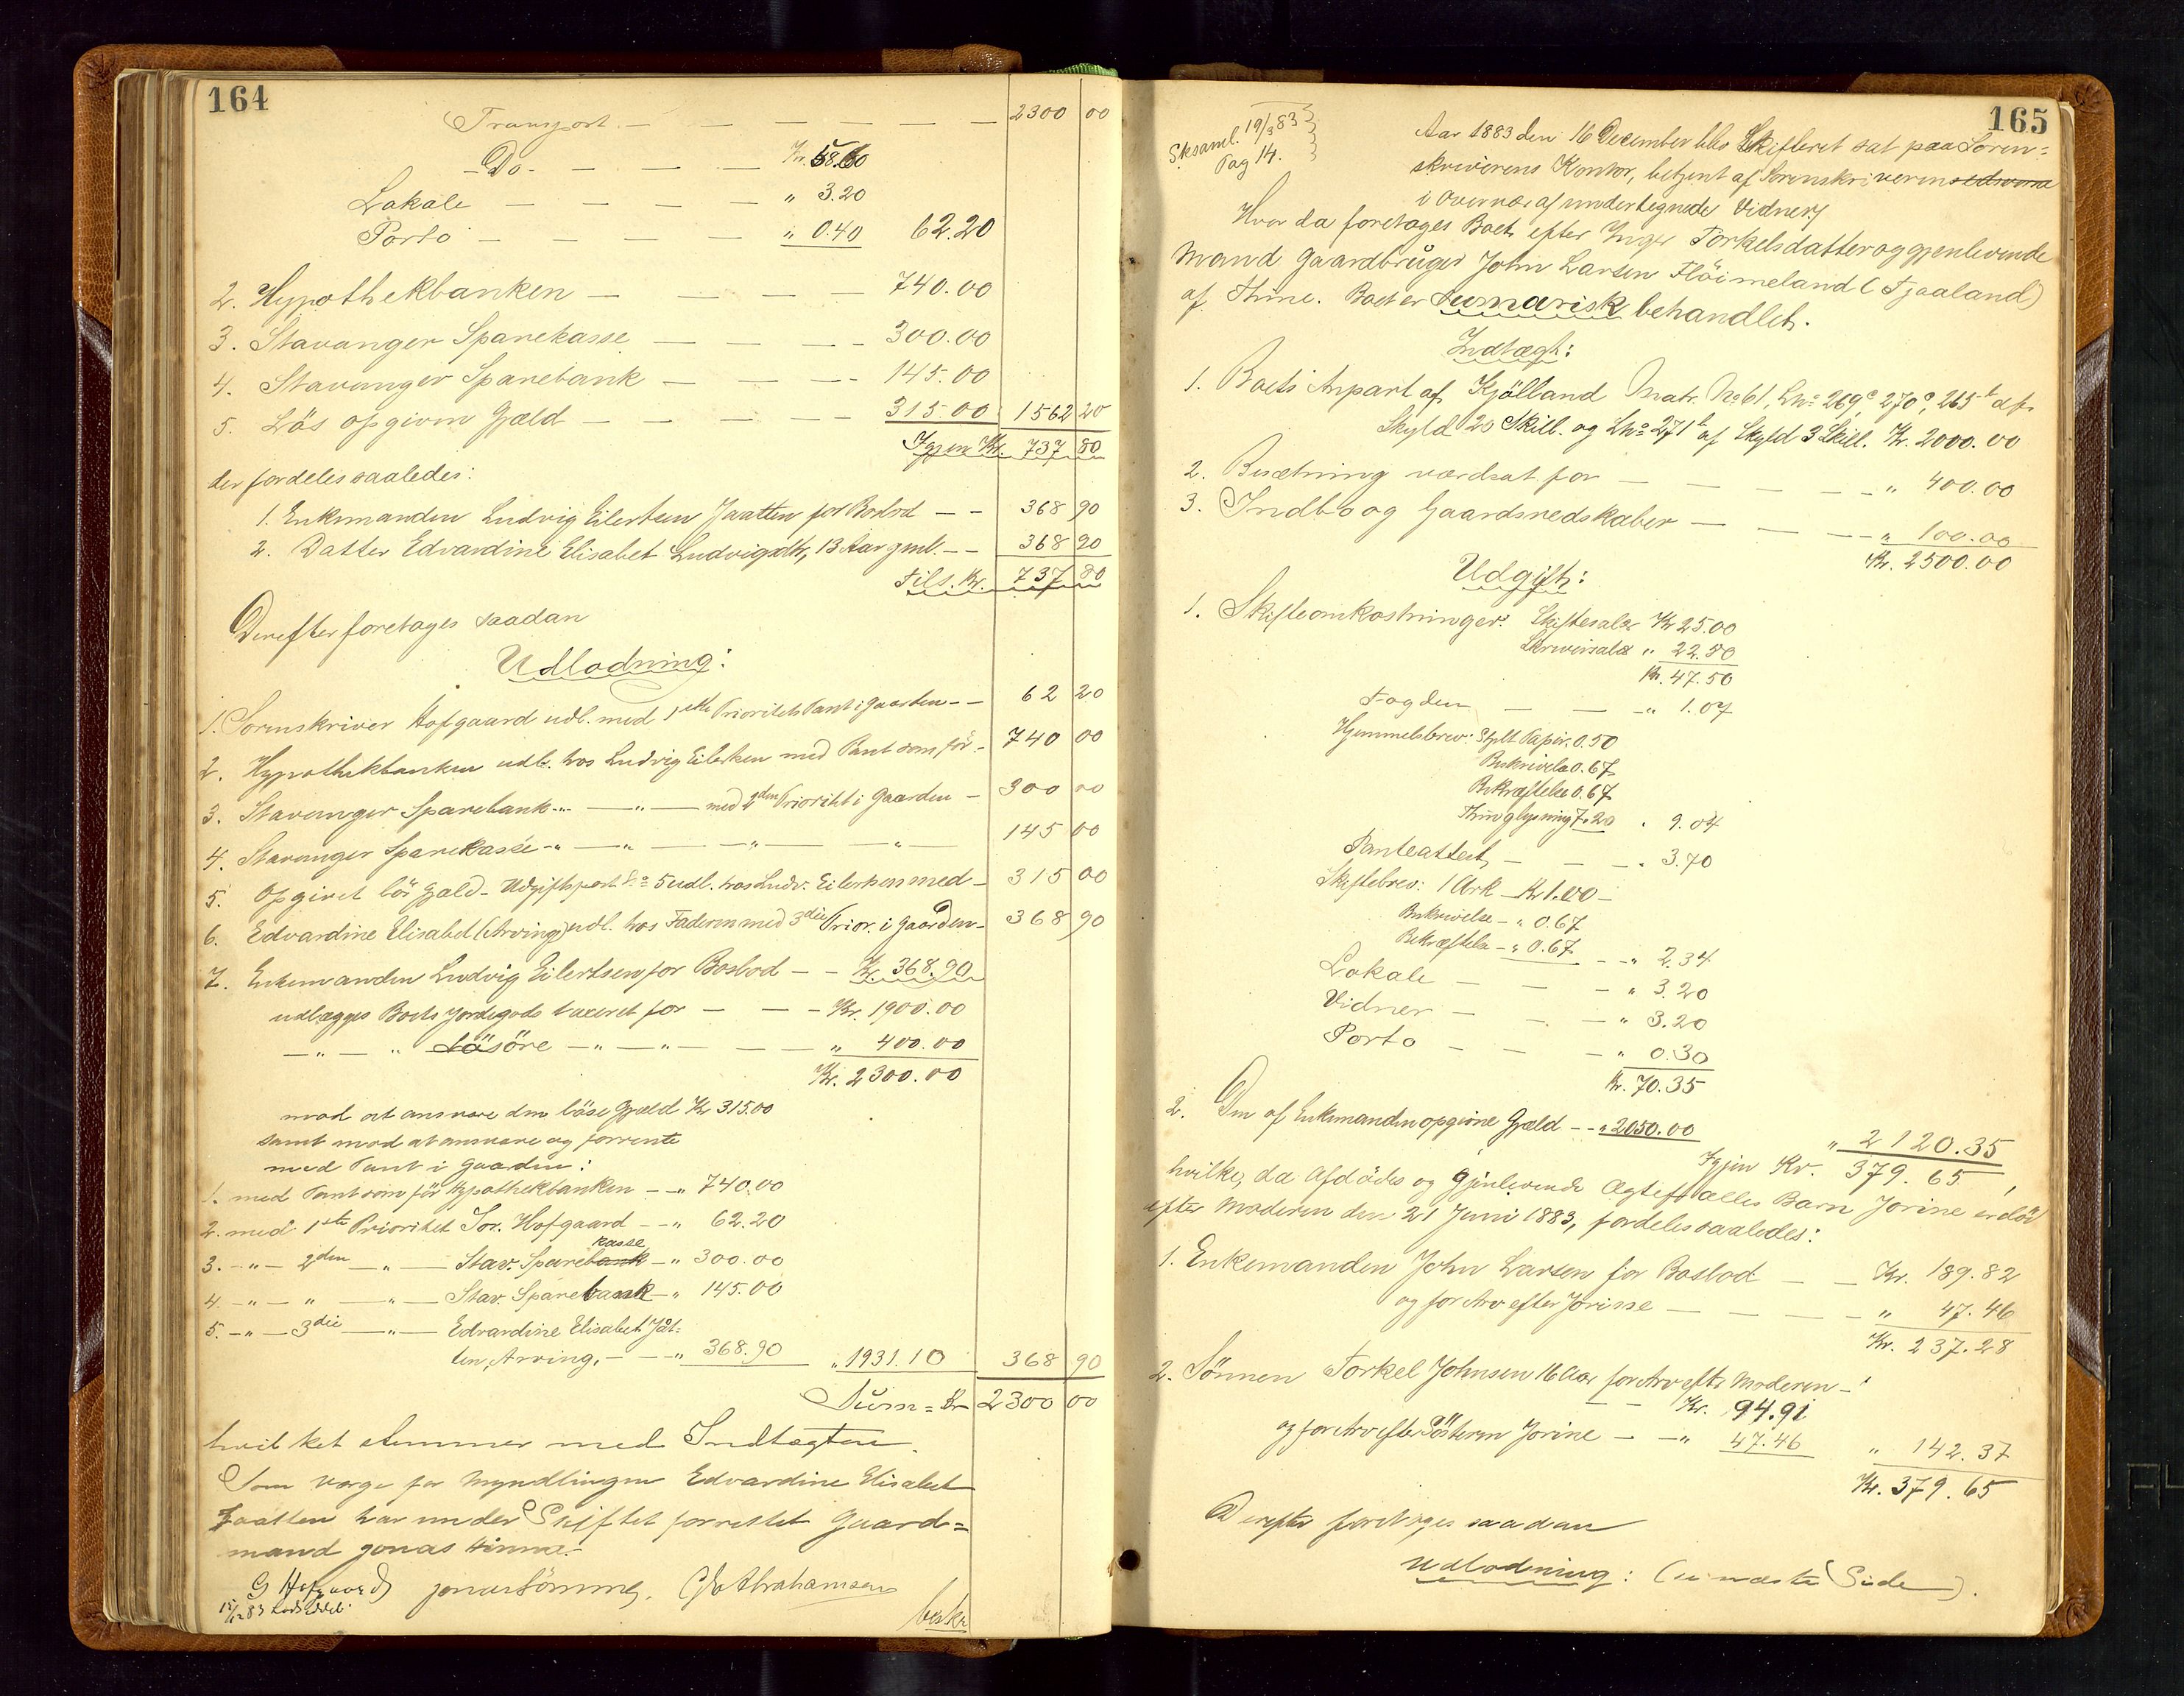 164
Transport. — — — — — — 2300 00
Do. — — — Kr. 58.60
Lokale — — — — „ 3.20
Porto — — — — „ 0.40 62.20
2. Hypothekbanken — — — — 740.00
3. Stavanger Sparekasse — — — — 300.00
4. Stavanger Sparebank — — — — 145.00
5. Lös opgiven Gjæld — — — — 315.00 1562 20
Igjen Kr. 737 80
der fordeles saaledes:
1. Enkemanden Ludvig Eilertsen Jaatten for Boslod — — 368 90
2. Datter Edvardine Elisabet Ludvigsdtr, 13 Aar gml. — — 368 90
Tils. Kr. 737 80
Derefter foretages saadan
Udlodning:
1. Sorenskriver Hofgaard udl. med 1ste Prioritets Pant i Gaarden — — 62 20
2. Hypothekbanken udl. hos Ludvig Eilertsen med Pant som för — 740 00
3. Stavanger Sparebank „ — „ — med 2den Prioritet i Gaarden — 300 00
4. Stavanger Sparekasse — „ — „ — „ — „ 145 00
5. Opgivet lös Gjæld — Udgiftspost No 5 udl. hos Ludv. Eilertsen med — 315 00
6. Edvardine Elisabet (Arving) udl. hos Faderen med 3die Prior. i Gaarden — 368 90
7. Enkemanden Ludvig Eilertsen for Boslod — — Kr. 368.90
udlægges Boets Jordegods taxeret for — — — Kr. 1900.00
— „ — „ Lösöre — „ — „ — — „ 400.00
Kr. 2300.00
mod at ansvare den löse Gjæld Kr 315.00
samt mod at ansvare og forrente
med Pant i Gaarden:
1. med Pant som för Hypothekbanken — „ 740.00
2. med 1ste Prioritet Sor. Hofgaard — „ 62.20
kasse
3. — „ — 2den — „ — Stav. Sparebank — „ 300.00
4. — „ — „ — „ — Stav. Sparebank — „ 145.00
5. — „ — 3die — „ — Edvardine Elisabet Jåt:
ten, Arving. — — „ 368.90 „ 1931.10 368 90
Sum = Kr 2300 00
hvilket stemmer med Indtægten.
Som Værge for Myndlingen Edvardine Elisabet
Jaatten har under Skiftet forrettet Gaard=
mand Jonas Hinna.
G Hofgaard Jonas Sömme, Abrahamsen
15/12 83
beskr
165
Sksaml. 19/3 83
Pag 14.
Aar 1883 den 16 December blev Skifteret sat paa Soren=
skriverens Kontor, betjent af Sorenskriveren
i Overvær af undertegnede Vidner
Hvor da foretages Boet efter Inger Torkelsdatter og gjenlevende
Mand Gaardbruger John Larsen Flöimeland (Tjaaland)
af Thime. Boet er sumarisk behandlet.
Indtægt:
1. Boets Anpart af Kjölland Matr. No 61, Lno 269c, 270c, 265b af
Skyld 20 Skill. og Lno 271b af Skyld 3 Skill. Kr. 2000.00
2. Besætning værdsat for — — — — „ 400.00
3. Indbo og Gaardsredskaber — — — „ 100.00
Kr. 2500.00
Udgift:
1. Skifteomkostninger: Skiftesalær Kr 25.00
Skriversalær „ 22.50
Kr. 47.50
Fogden — — „ 1.07
Hjemmelsbrev: Stplt Papir 0.50
Beskrivelse 0.67
Bekræftelse 0.67
Thinglysning 7.20 „ 9.04
Panteattest — — „ 3.70
Skiftebrev: 1 Ark — Kr 1.00 —
Beskrivelse — „ 0.67
Bekræftelse — „ 0.67 — „ 2.34
Lokale — — — „ 3.20
Vidner — — — „ 3.20
Porto — — — „ 0.30
Kr. 70.35
2. Den af Enkemanden opgivne Gjæld — — „ 2050.00
„ 2120.35
Igjen Kr. 379.65,
hvilke, da Afdödes og gjenlevende Ægtefælles Barn Jorine er död
efter Moderen den 21 Juni 1883, fordeles saaledes:
1. Enkemanden John Larsen for Boslod — — Kr. 189.82
og for Arv efter Jorine — — — „ 47.46
Kr. 237.28
2. Sönnen Torkel Johnsen 16 Aar for Arv efter Moderen —
— — Kr. 94.91
og for Arv efter Sösteren Jorine — — „ 47.46 „ 142.37
Kr. 379.65
Derefter foretages saadan
Udlodning: (se næste Side).